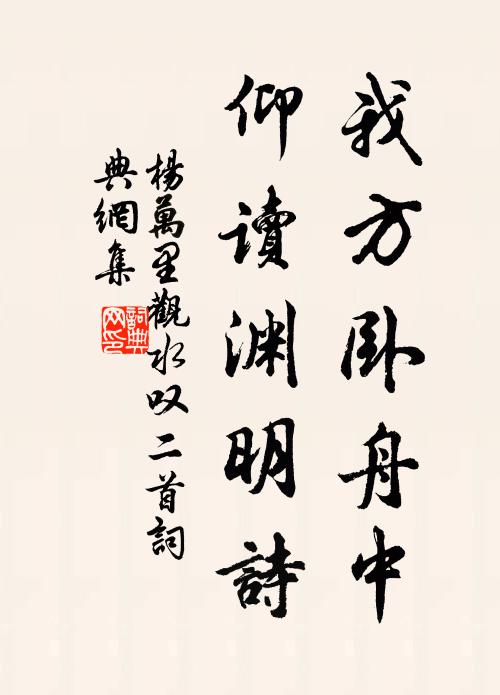 我方卧舟中
仰讀渊明詩
楊萬里觀水叹二首詞
典網集
詞典
网印